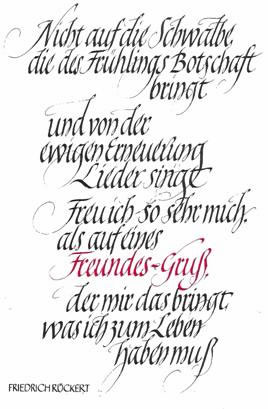 Nicht auf die Schwalbe,
die des Frühlings Botschaft
bringt
und von der
ewigen Erneuerung
Lieder singt
Freu ich so sehr mich,
als auf eines
Freundes-Gruß,
der mir das bringt,
was ich zum Leben
haben muß
FRIEDRICH RÜCKERT